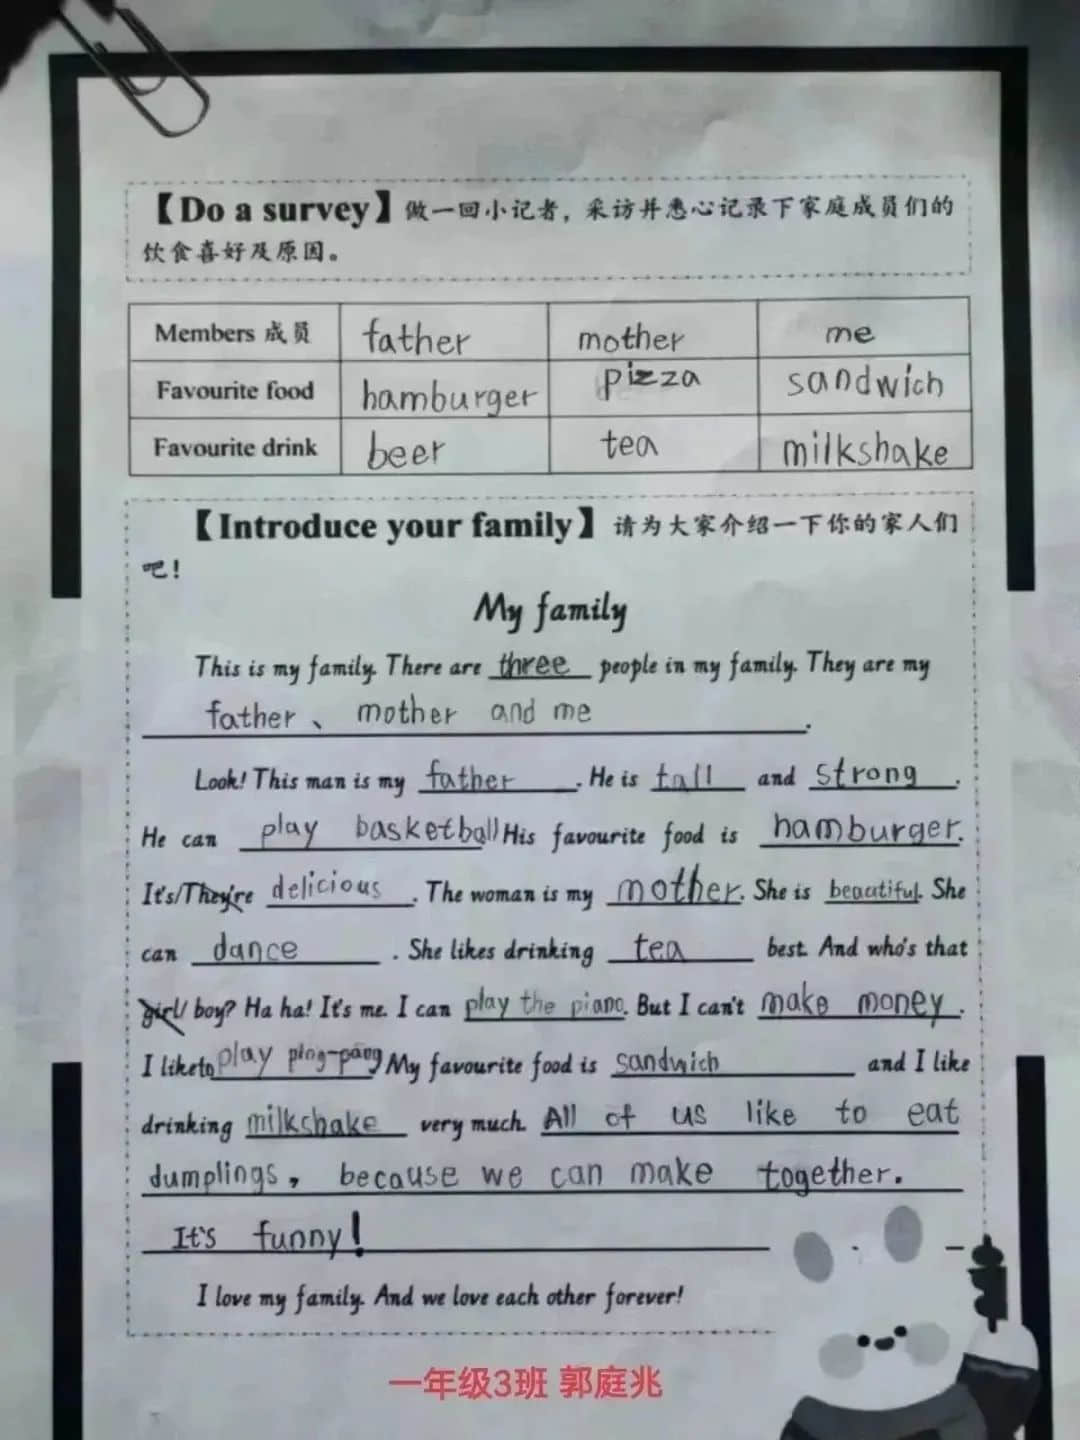 【Do a survey】做一回小记者，采访并悉心记录下家庭成员们的
饮食喜好及原因。
Members 成员 father mother me
Favourite food hamburger pizza sandwich
Favourite drink beer tea milkshake
【Introduce your family】请为大家介绍一下你的家人们
吧！
My family
This is my family. There are three people in my family. They are my
father、 mother and me.
Look! This man is my father. He is tall and strong.
He can play basketball His favourite food is hamburger.
It's/They're delicious. The woman is my mother. She is beautiful. She
can dance. She likes drinking tea best. And who's that
girl/ boy? Ha ha! It's me. I can play the piano. But I can't make money.
I like to play ping-pang My favourite food is sandwich and I like
drinking milkshake very much. All of us like to eat
dumplings, because we can make together.
It's funny!
I love my family. And we love each other forever!
一年级3班 郭庭兆